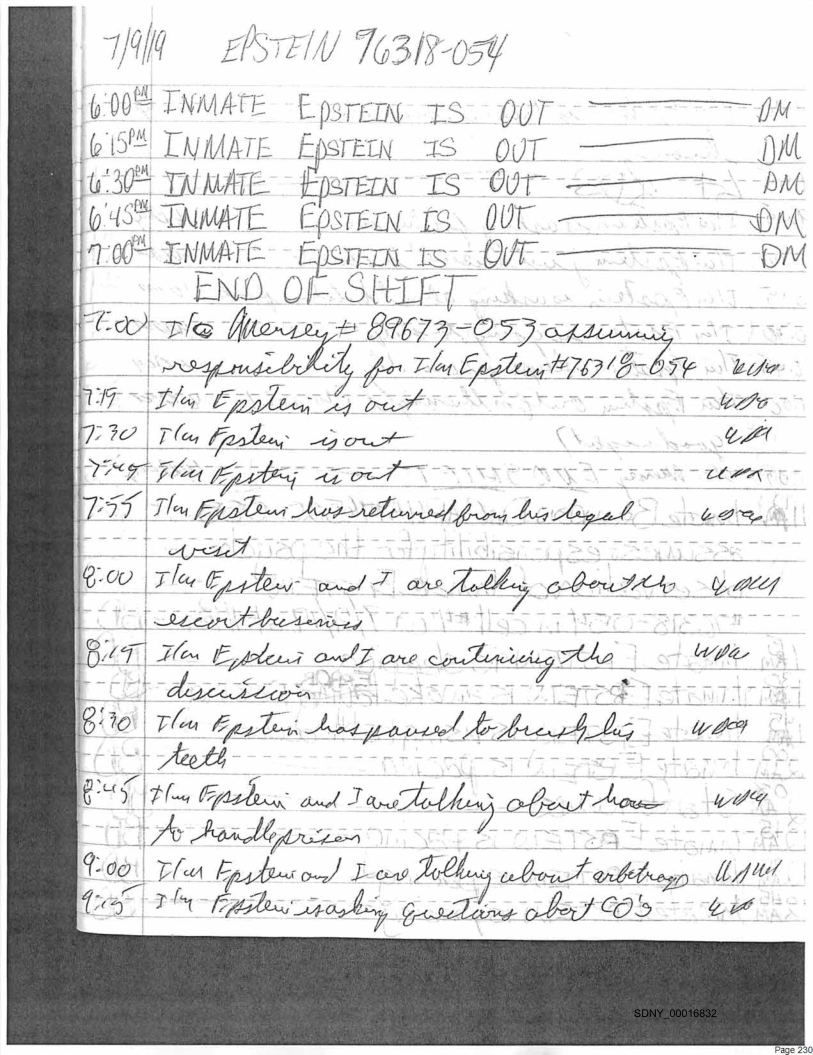 7/9/19 EPSTEIN 76318-054
6:00PM INMATE EPSTEIN IS OUT DM
6:15PM INMATE EPSTEIN IS OUT DM
6:30PM INMATE EPSTEIN IS OUT DM
6:45PM INMATE EPSTEIN IS OUT DM
7:00PM INMATE EPSTEIN IS OUT DM
END OF SHIFT
7:00 I/m Mersey # 89673-053 assuming
responsibility for I/m Epstein #76318-054
7:15 I/m Epstein is out
7:30 I/m Epstein is out
7:45 I/m Epstein is out
7:55 I/m Epstein has returned from his legal
visit
8:00 I/m Epstein and I are talking about the
escort business
8:15 I/m Epstein and I are continuing the
discussion
8:30 I/m Epstein has paused to brush his
teeth
8:45 I/m Epstein and I are talking about how
to handle prison
9:00 I/m Epstein and I are talking about arbitrage
9:15 I/m Epstein is asking questions about CO's
SDNY_00016832
Page 230